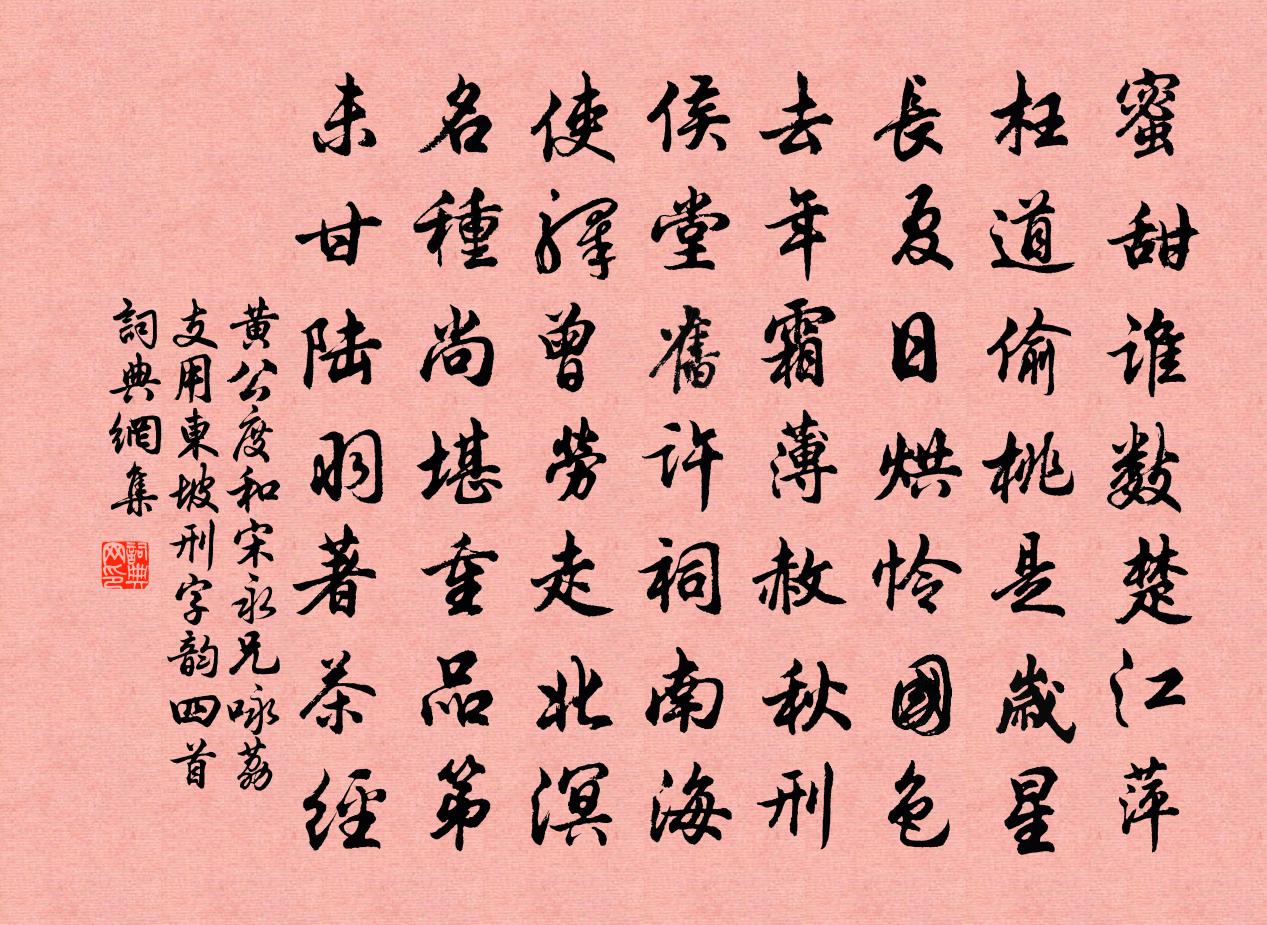 蜜甜谁数楚江萍
枉道偷桃是歲星
長夏日烘怜國色
去年霜薄赦秋刑
侯堂舊许祠南海
使驛曾勞走北溟
名種尚堪重品第
未甘陆羽著茶經
黄公度和宋永兄咏荔
支用東坡刑字韵四首
詞典網集
詞典网印